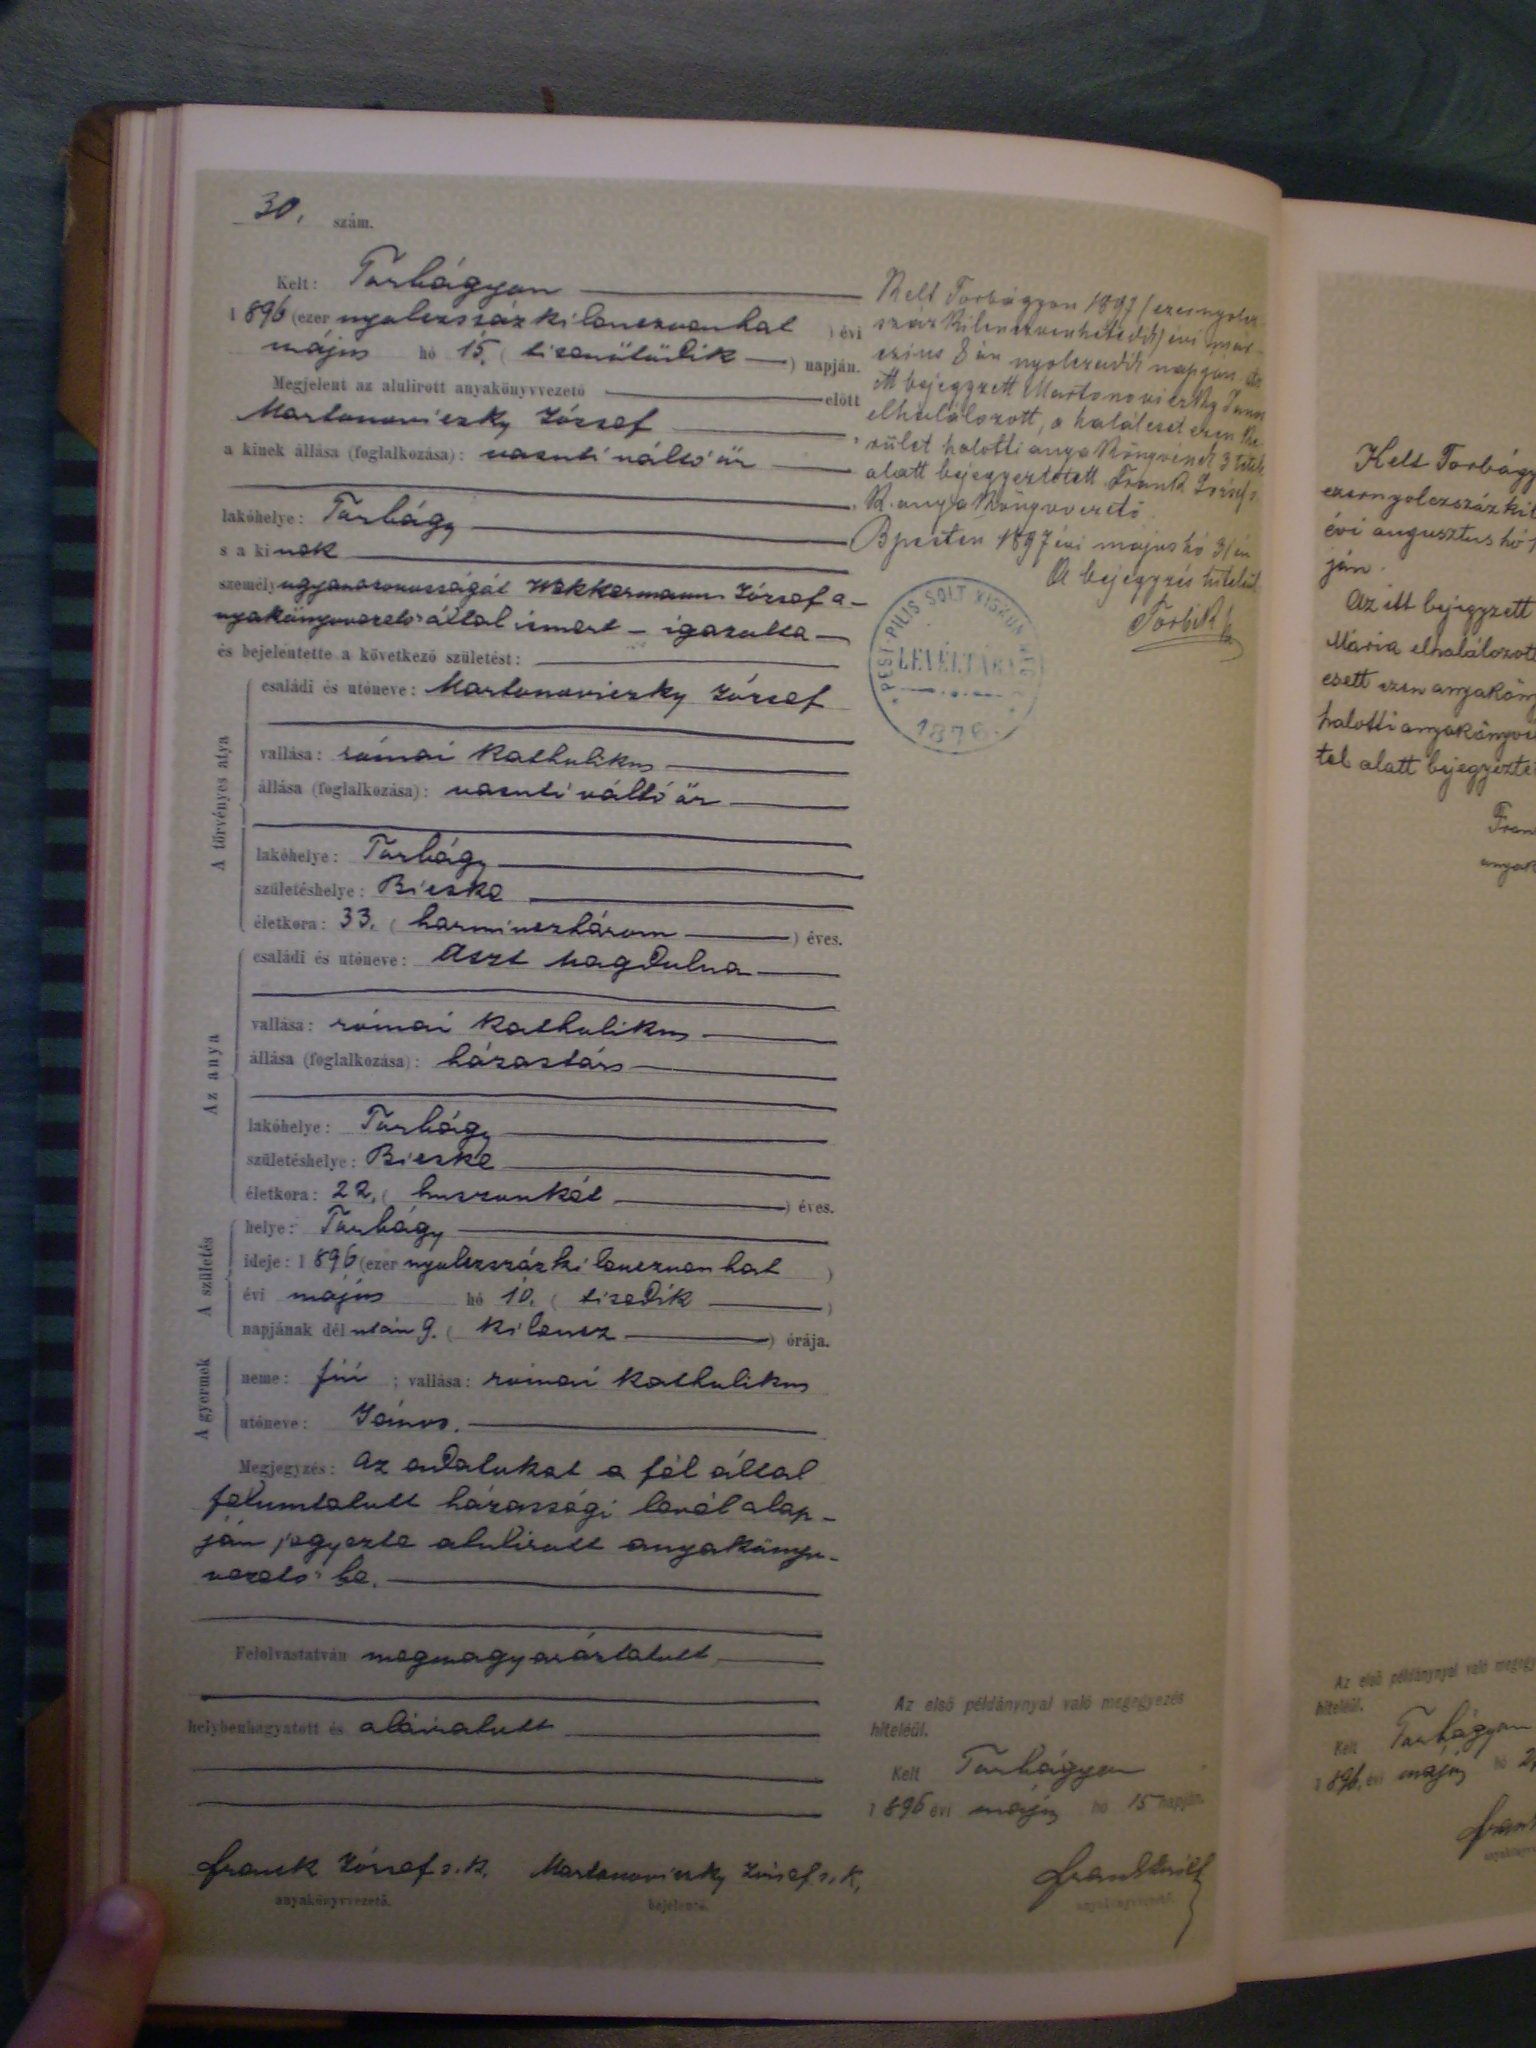 30. szám.
Kelt: Torbágyon
1896 (ezer nyolczszázkilenczvenhat ) évi
május hó 15. ( tizenötödik ) napján.
Megjelent az alulirott anyakönyvvezető előtt
Martonoviczky József ,
a kinek állása (foglalkozása): vasuti váltó őr
,
lakóhelye: Torbágy
s a kinek
személyugyanazonosságát Wekkermann József a-
nyakönyvvezető által ismert – igazolta –
és bejelentette a következő születést:
A törvényes atya
családi és utóneve: Martonoviczky József
vallása: római katholikus
állása (foglalkozása): vasuti váltó őr
lakóhelye: Torbágy
születéshelye: Bicske
életkora: 33. ( harminczhárom ) éves.
Az anya
családi és utóneve: Aszt Magdolna
vallása: római katholikus
állása (foglalkozása): házastárs
lakóhelye: Torbágy
születéshelye: Bicske
életkora: 22. ( huszonkét ) éves.
A születés
helye: Torbágy
ideje: 1896 (ezer nyolczszázkilenczvenhat )
évi május hó 10. ( tizedik )
napjának dél után 9. ( kilencz ) órája.
A gyermek
neme: fiú ; vallása: római katholikus
utóneve: János.
Megjegyzés: Az adatokat a fél által
felmutatott házassági levél alap-
ján jegyezte alulirott anyakönyv-
vezető be.
Felolvastatván megmagyaráztatott
helybenhagyatott és aláiratott
Franck József s. k. Martonoviczky József s. k.
anyakönyvvezető. bejelentő.
Kelt Torbágyon 1897 (ezernyolcz
száz kilenczvenhetedik) évi már-
czius 8 án nyolczadik napján. Az
itt bejegyzett Martonoviczky János
elhalálozott, a haláleset ezen ke-
rület halotti anyakönyvének 3 tétele
alatt bejegyeztetett Frank József s.
k. anyakönyvvezető.
Bpesten 1897 évi május hó 31 én
A bejegyzés hiteléül
PEST-PILIS SOLT KISKUN
LEVÉLTÁRA
1876
Az első példánynyal való megegyezés
hiteléül.
Kelt Torbágyon
1896 évi május hó 15 napján.
Frank József
anyakönyvvezető.
Kelt Torbágy
ezernyolczszázkil
évi augusztus hó 1
ján.
Az itt bejegyzett
Mária elhalálozott
esett ezen anyakönyv
halotti anyakönyvé
tel alatt bejegyeztet
Fran
anyak
Az első példánynyal való megegy
hiteléül.
Kelt Torbágyon
1896. évi május hó 2
Frank
anyakönyvv